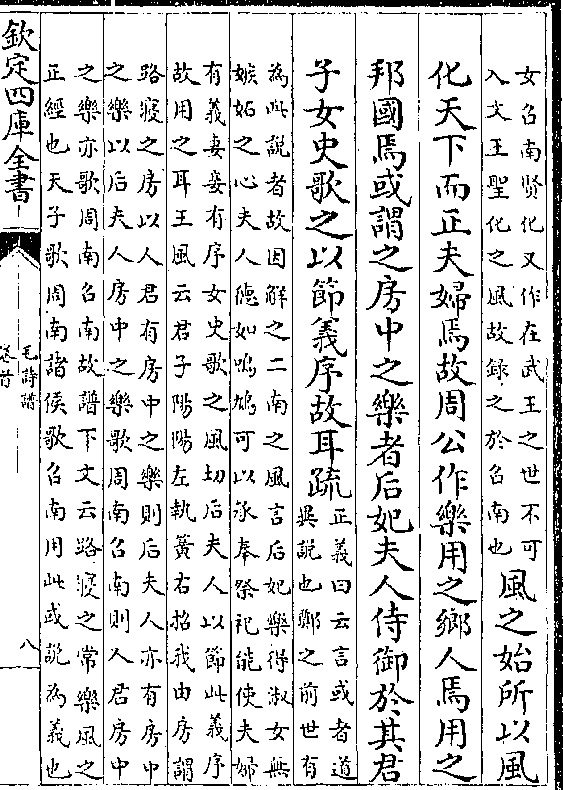 女召南賢化又作在武王之世不可
入文王聖化之風故録之於召南也
風之始所以風
化天下而正夫婦焉故周公作樂用之鄉人焉用之
邦國焉或謂之房中之樂者后妃夫人侍御於其君
子女史歌之以節義序故耳疏
正義曰云言或者道
異説也鄭之前世有
為此説者故因解之二南之風言后妃樂得淑女無
嫉妬之心夫人德如鳲鳩可以承奉祭祀能使夫婦
有義妻妾有序女史歌之風切后夫人以節此義序
故用之耳王風云君子陽陽左執簧右招我由房謂
路寢之房以人君有房中之樂則后夫人亦有房中
之樂以后夫人房中之樂歌周南召南則人君房中
之樂亦歌周南召南故譜下文云路寢之常樂風之
正經也天子歌周南諸侯歌召南用此或説為義也
欽定四庫全書
毛詩譜
卷首
八